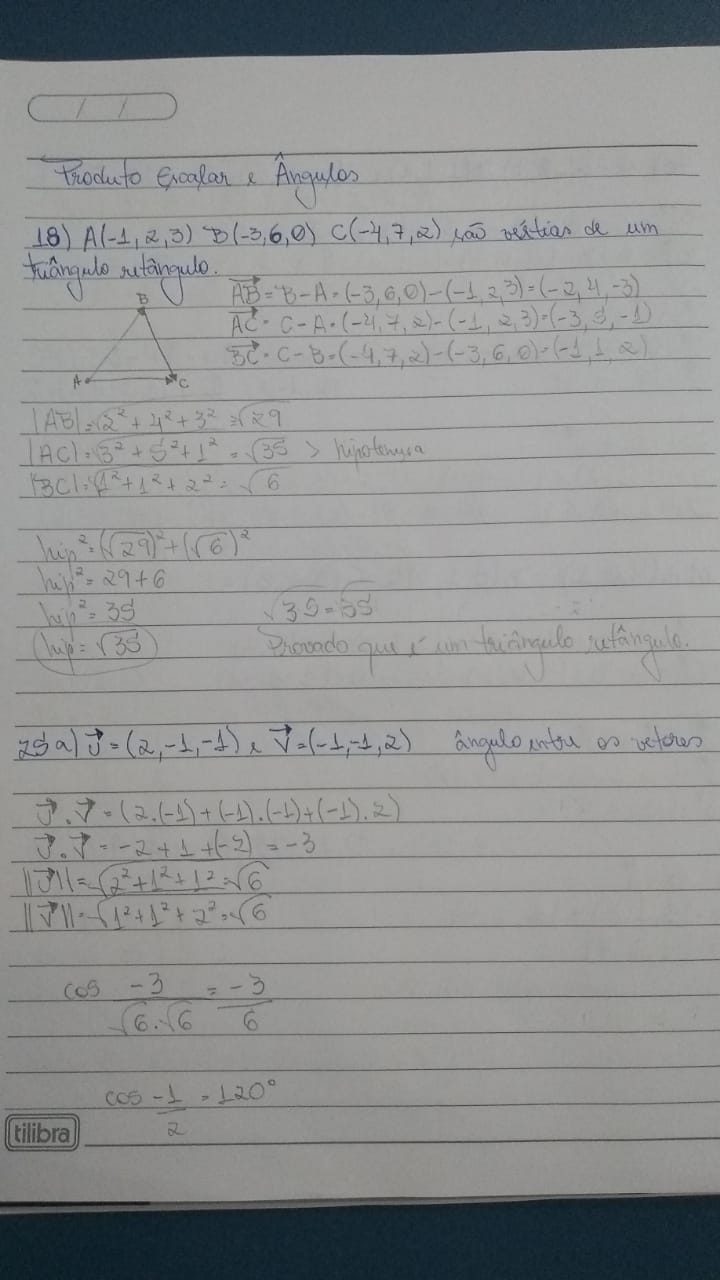 / /
Produto Escalar e Ângulos
18) A(-1,2,3) B(-3,6,0) C(-4,7,2) são vértias de um
triângulo retângulo.
B
A
C
AB = B-A = (-3,6,0)-(-1,2,3)=(-2,4,-3)
AC = C-A = (-4,7,2)-(-1,2,3)=(-3,5,-1)
BC = C-B = (-4,7,2)-(-3,6,0)=(-1,1,2)
|AB| = √2²+4²+3² = √29
|AC| = √3²+5²+1² = √35 > hipotenusa
|BC| = √1²+1²+2² = √6
hip² = (√29)²+(√6)²
hip² = 29+6
hip² = 35
√35 = 35
hip = √35
Provado que é um triângulo retângulo.
25 a) U = (2,-1,-1) e V = (-1,-1,2) ângulo entre os vetores
U.V = (2.(-1)+(-1).(-1)+(-1).2)
U.V = -2+1+(-2) = -3
||U|| = √2²+1²+1² = √6
||V|| = √1²+1²+2² = √6
cos -3/√6.√6 = -3/6
cos -1/2 = 120°
tilibra